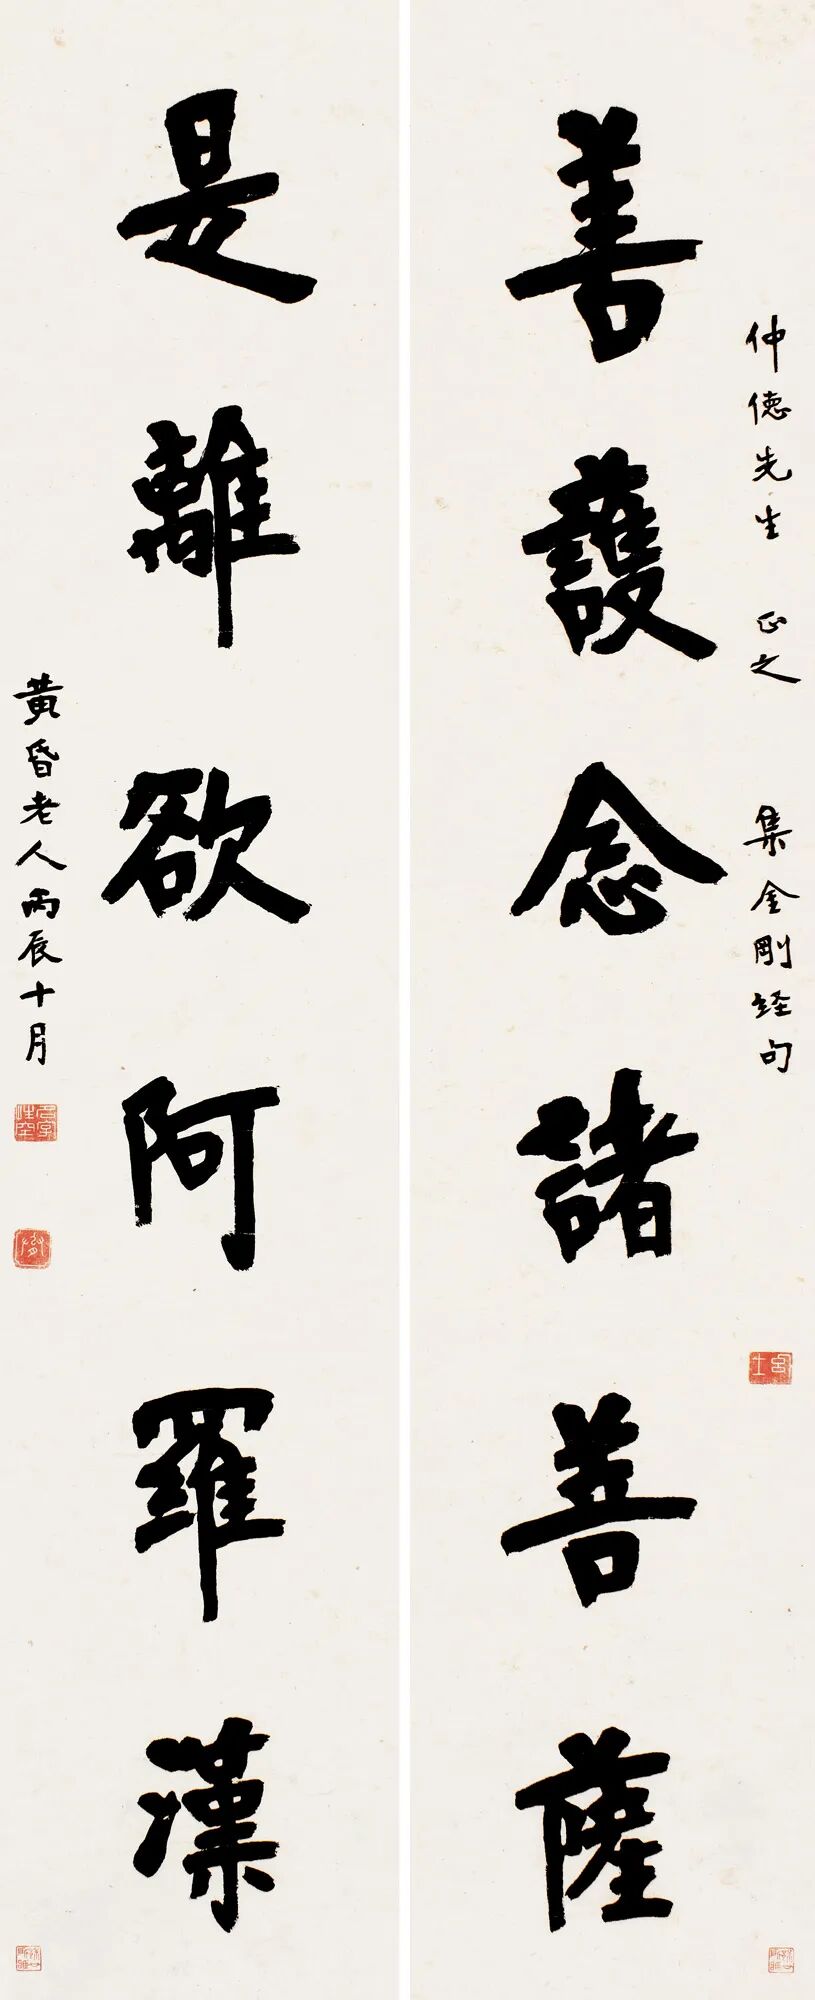 仲徳先生 正之 集金剛経句
善護念諸菩薩
是離欲阿羅漢
黄昏老人丙辰十月